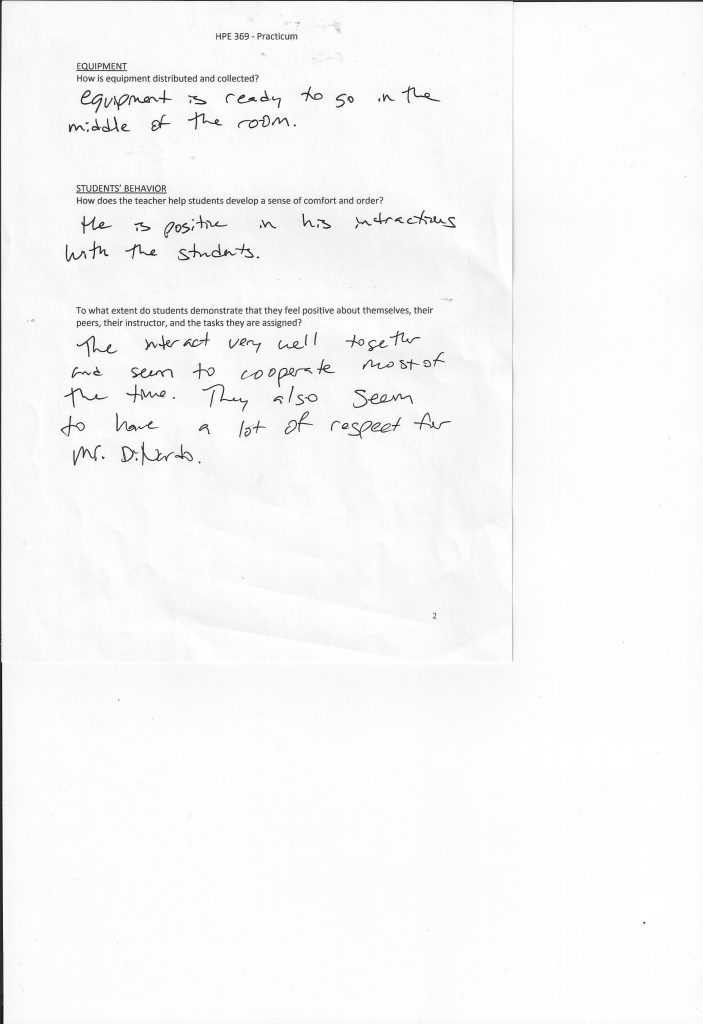 HPE 369 - Practicum
EQUIPMENT
How is equipment distributed and collected?
equipment is ready to go in the
middle of the room.
STUDENTS' BEHAVIOR
How does the teacher help students develop a sense of comfort and order?
He is positive in his intractions
with the students.
To what extent do students demonstrate that they feel positive about themselves, their
peers, their instructor, and the tasks they are assigned?
The interact very well together
and seem to cooperate most of
the time. They also seem
to have a lot of respect for
Mr. DiNardo.
2